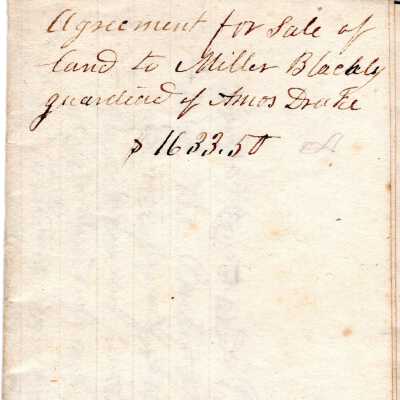 Agreement for Sale of
land to Miller Blachly
guardian of Amos Drake
$1633.50